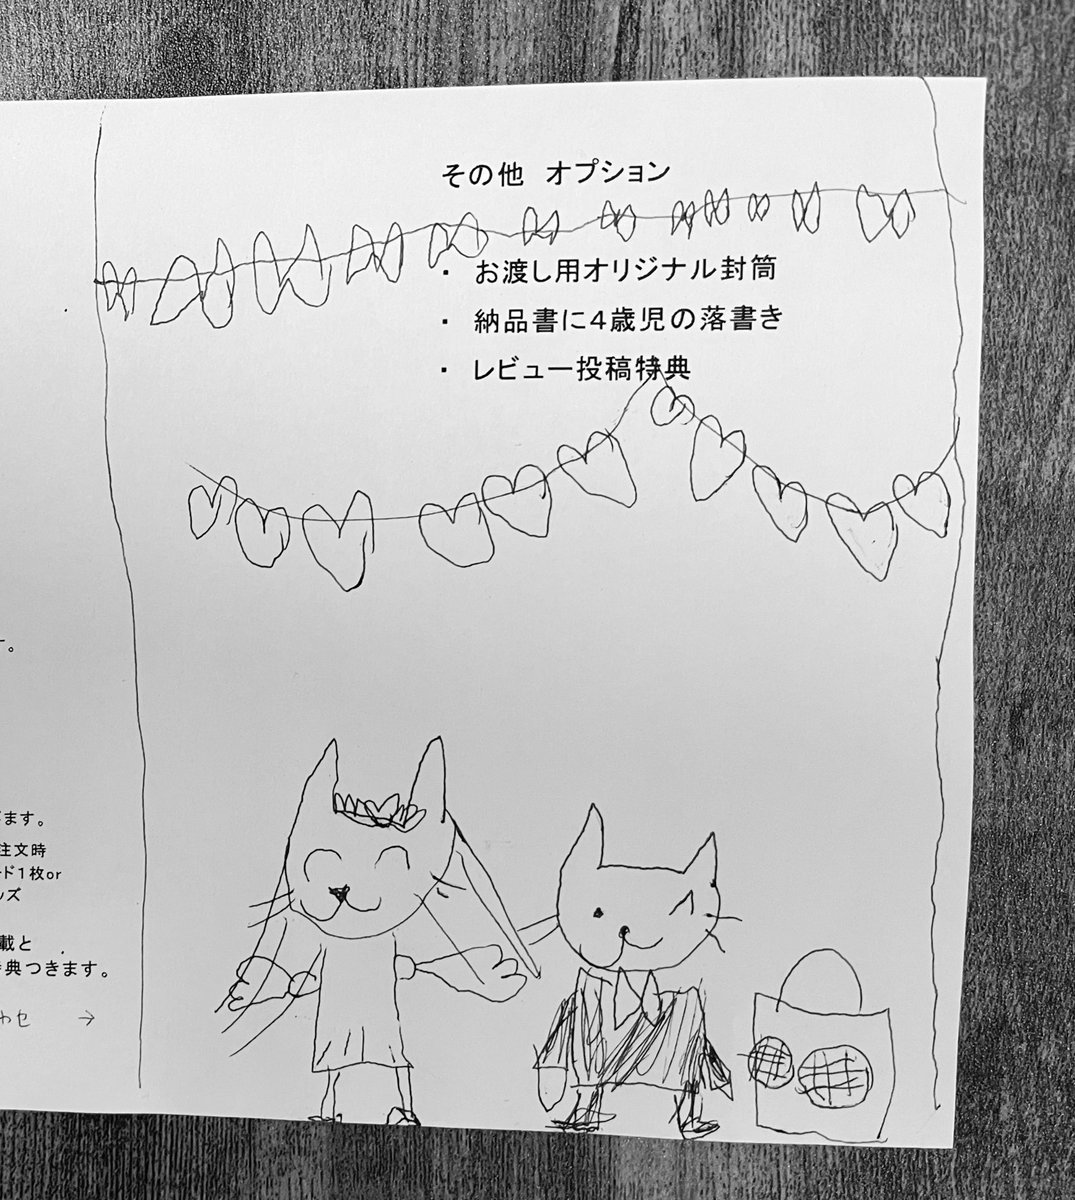 その他 オプション
・ お渡し用オリジナル封筒
・ 納品書に４歳児の落書き
・ レビュー投稿特典
す。
ます。
注文時
ード１枚or
ッズ
載と
特典つきます。
わせ →